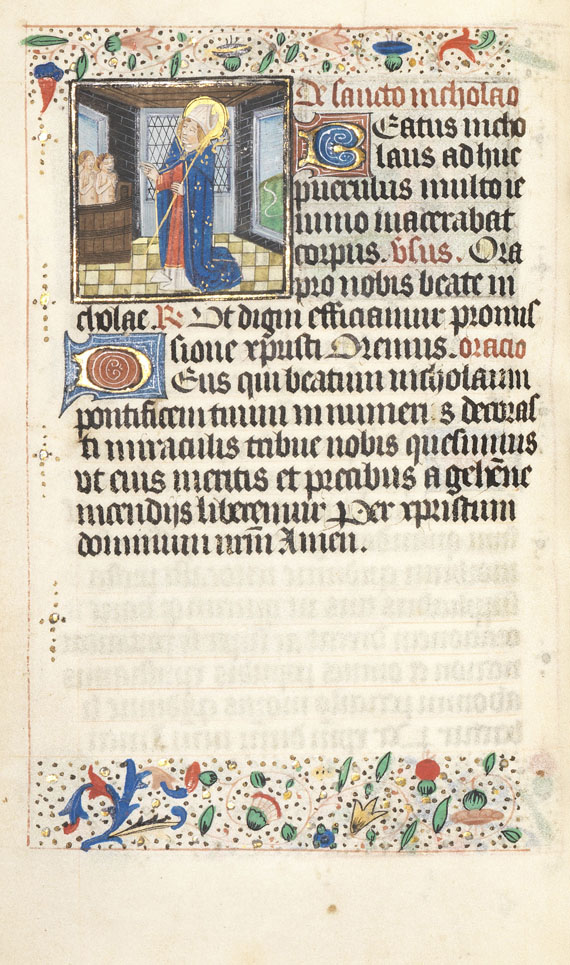 De sancto nicholao
Eatus nicho
laus adhuc
puerulus multo ie
iunio macerabat
corpus. v̄sus. Ora
pro nobis beate ni
cholae. R̄. Ut digni efficiamur promis
sione xp̄risti Oremus. oracio
Deus qui beatum nicholaum
pontificem tuum innumeri s decoras
ti miraculis tribue nobis quesumus
ut eius meritis et precibus a gehēne
incendijs liberemur Per xpristum
dominum nr̄m Amen.